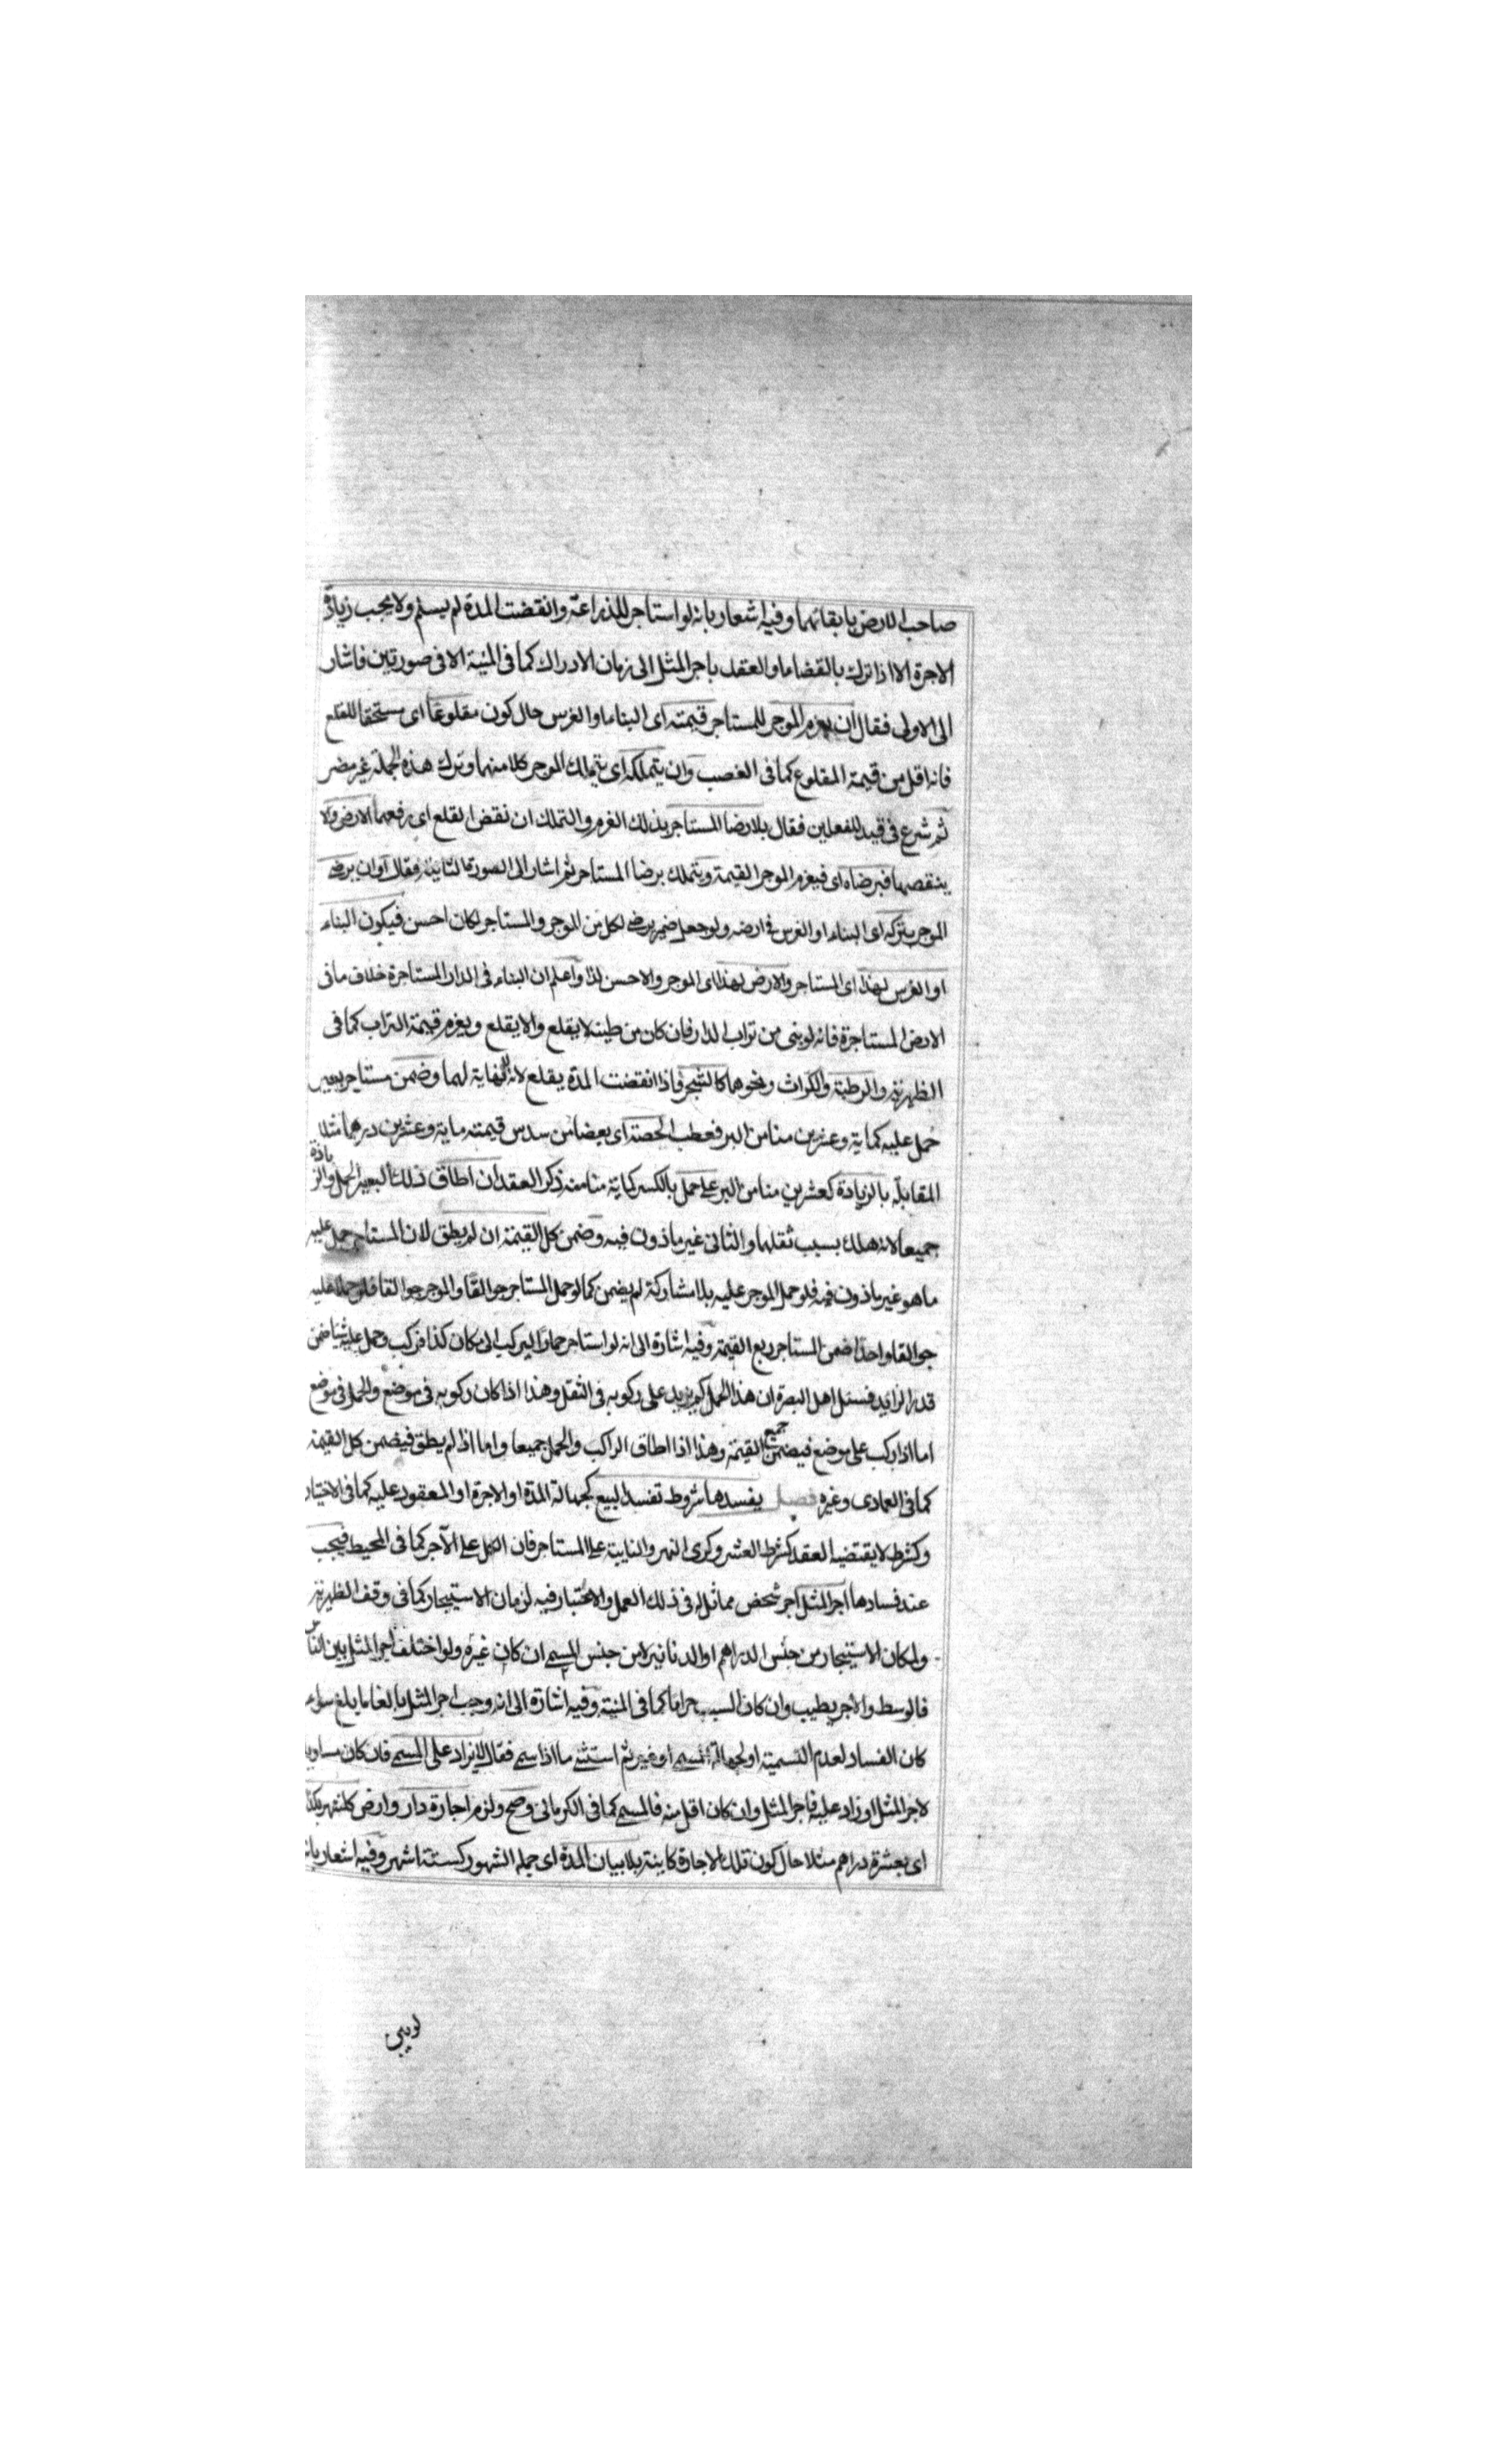 صاحب الارض بابقائهما وفيه اشعار بانه لو استاجر للزراعة وانقضت المدة لم يسلم ولا يجب زيادة
الاجرة الا اذا ترك بالقضاء او العقد باجر المثل الى زمان الادراك كما فى المنية الا فى صورتين فاشار
الى الاولى فقال ان يغرم الموجر للمستاجر قيمته اى البناء او الغرس حال كون مقلوعا اى مستحقا للقلع
فانه اقل من قيمة المقلوع كما فى الغصب وان يتملكه اى يتملك الموجر كلا منهما وترك هذه الجملة غير مضر
ثم شرع فى قيد للفعلين فقال بلا رضا المستاجر بذلك الغرم والتملك ان نقض القلع اى رفعهما الارض والا
ينقصها فبرضاه اى فيغرم الموجر القيمة ويتملك برضا المستاجر ثم اشار الى الصورة الثانية فقال او ان يرضى
الموجر بتركه اى البناء او الغرس فى ارضه ولو جعل ضمير يرضى لكل من الموجر والمستاجر لكان احسن فيكون البناء
او الغرس لهذا اى المستاجر والارض لهذا اى الموجر والاحسن لذا واعلم ان البناء فى الدار المستاجرة خلاف ما فى
الارض المستاجرة فانه لو بنى من تراب الدار فان كان من طينه لا يقلع والا يقلع ويغرم قيمة التراب كما فى
الظهيرية والرطبة والكراث ونحوهما كالشجر فاذا انقضت المدة يقلع لانه لا نهاية لهما وضمن مستاجر بعير
حمل عليه كماية وعشرين منا من البر فعطب الحصة اى بعضا من سدس قيمته ماية وعشرين درهما مثلا
المقابلة بالزيادة كعشرين منا من البر على حمل بالكسر كماية منا منه ذكر العقد ان اطاق ذلك البعير الحمل والزيادة
جميعا لانه هلك بسبب ثقلهما والثانى غير ماذون فيه وضمن كل القيمة ان لم يطق لان المستاجر حمل عليه
ما هو غير ماذون فيه فلو حمل الموجر عليه بلا مشاركة لم يضمن كما لو حمل المستاجر جوالقا والموجر جوالقا فلو حملا عليه
جوالقا واحدا ضمن المستاجر ربع القيمة وفيه اشارة الى انه لو استاجر حمارا ليركب الى مكان كذا فركب وحمل عليه شيئا ضمن
قدر الزايد فسئل اهل البصرة ان هذا الحمل كم يزيد على ركوبه فى الثقل وهذا اذا كان ركوبه فى موضع والحمل فى موضع
اما اذا ركب على موضع فيضمن جميع القيمة وهذا اذا اطاق الراكب والحمل جميعا واما اذا لم يطق فيضمن كل القيمة
كما فى العمادى وغيره فصل يفسدها شروط تفسد البيع كجهالة المدة او الاجرة او المعقود عليه كما فى الاختيار
وكشرط لا يقتضيه العقد كشرط العشر وكرى النهر والنايبة على المستاجر فان الكل على الآجر كما فى المحيط فيجب
عند فسادها اجر المثل اجر شخص مماثل له فى ذلك العمل والاعتبار فيه لزمان الاستيجار كما فى وقف الظهيرية
ولمكان الاستيجار من جنس الدراهم او الدنانير لا من جنس المسمى ان كان غيره ولو اختلف اجر المثل بين الناس
فالوسط والاجر يطيب وان كان السبب حراما كما فى المنية وفيه اشارة الى انه وجب اجر المثل بالغا ما بلغ سواء
كان الفساد لعدم التسمية او لجهالة المسمى او غير ثم استثنى ما اذا سمى فقال لا يزاد على المسمى فان كان مساويا
لاجر المثل او زاد عليه فاجر المثل وان كان اقل منه فالمسمى كما فى الكرمانى وصح ولزم اجارة دار وارض كل شهر بكذا
اى بعشرة دراهم مثلا حال كون تلك الاجارة كاينة بلا بيان المدة اى جملة الشهور كستة اشهر وفيه اشعار بانه